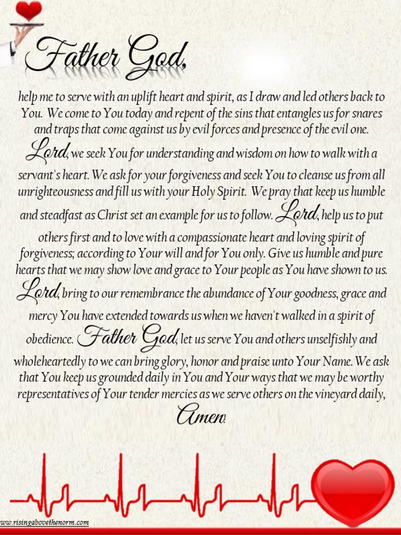 Father God,
help me to serve with an uplift heart and spirit, as I draw and led others back to
You. We come to You today and repent of the sins that entangles us for snares
and traps that come against us by evil forces and presence of the evil one.
Lord, we seek You for understanding and wisdom on how to walk with a
servant's heart. We ask for your forgiveness and seek You to cleanse us from all
unrighteousness and fill us with your Holy Spirit. We pray that keep us humble
and steadfast as Christ set an example for us to follow. Lord, help us to put
others first and to love with a compassionate heart and loving spirit of
forgiveness; according to Your will and for You only. Give us humble and pure
hearts that we may show love and grace to Your people as You have shown to us.
Lord, bring to our remembrance the abundance of Your goodness, grace and
mercy You have extended towards us when we haven't walked in a spirit of
obedience. Father God, let us serve You and others unselfishly and
wholeheartedly to we can bring glory, honor and praise unto Your Name. We ask
that You keep us grounded daily in You and Your ways that we may be worthy
representatives of Your tender mercies as we serve others on the vineyard daily,
Amen!
www.risingabovethenorm.com